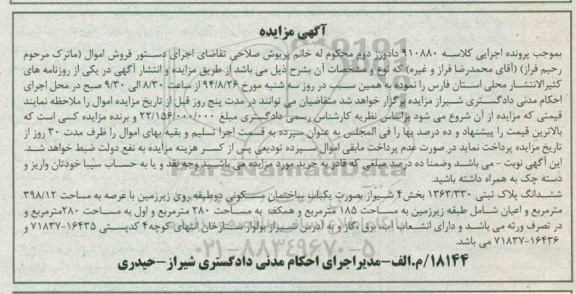 آگهی مزایده
بموجب پرونده اجرایی کلاسه ۹۱۰۸۸۰ دادورز دوم محکوم له خانم پریوش صلاحی تقاضای اجرای دستور فروش اموال (ماترک مرحوم
رحیم فراز) (آقای محمدرضا فراز و غیره) که نوع و مشخصات آن بشرح ذیل می باشد از طریق مزایده و انتشار آگهی در یکی از روزنامه های
کثیرالانتشار محلی استان فارس را نموده به همین سبب در روز سه شنبه مورخ ۹۴/۸/۲۶ از ساعت ۸/۳۰ الی ۹/۳۰ صبح در محل اجرای
احکام مدنی دادگستری شیراز مزایده برگزار خواهد شد متقاضیان می توانند در مدت پنج روز قبل از تاریخ مزایده اموال را ملاحظه نمایند
قیمتی که مزایده از آن شروع می شود براساس نظریه کارشناس رسمی دادگستری مبلغ ۲۲/۱۵۶/۰۰۰/۰۰۰ و برنده مزایده کسی است که
بالاترین قیمت را پیشنهاد و ده درصد بها را فی المجلس به عنوان سپرده به قسمت اجرا تسلیم و بقیه بهای اموال را ظرف مدت ۳۰ روز از
تاریخ مزایده پرداخت نماید در صورت عدم پرداخت مابقی اموال سپرده تودیعی پس از کسر هزینه مزایده به نفع دولت ضبط خواهد شد.
این آگهی نوبت - می باشد وضمنا ده درصد مبلغی که قادر به خرید مورد مزایده می باشید وجه نقد و یا به حساب سیبا خودتان واریز و
دسته چک به همراه داشته باشید.
ششدانگ پلاک ثبتی ۱۳۶۳/۳۳۰ بخش ۴ شیراز بصورت یکباب ساختمان مسکونی دوطبقه روی زیرزمین با عرصه به مساحت ۳۹۸/۱۲
مترمربع و اعیان شامل طبقه زیرزمین به مساحت ۱۸۵ مترمربع و همکف به مساحت ۲۸۰ مترمربع و اول به مساحت ۲۸۰مترمربع و
در تصرف ورثه می باشد و دارای انشعاب آب، برق، گاز و به آدرس شیراز بولوار ستارخان انتهای کوچه ۴ کدپستی ۱۶۴۳۵-۷۱۸۳۷ و
۱۶۴۳۶-۷۱۸۳۷ می باشد.
۱۸۱۴۴/م.الف-مدیراجرای احکام مدنی دادگستری شیراز-حیدری
ParsNamadData
۰۲۱-۸۸۳۴۹۶۷۰-۵